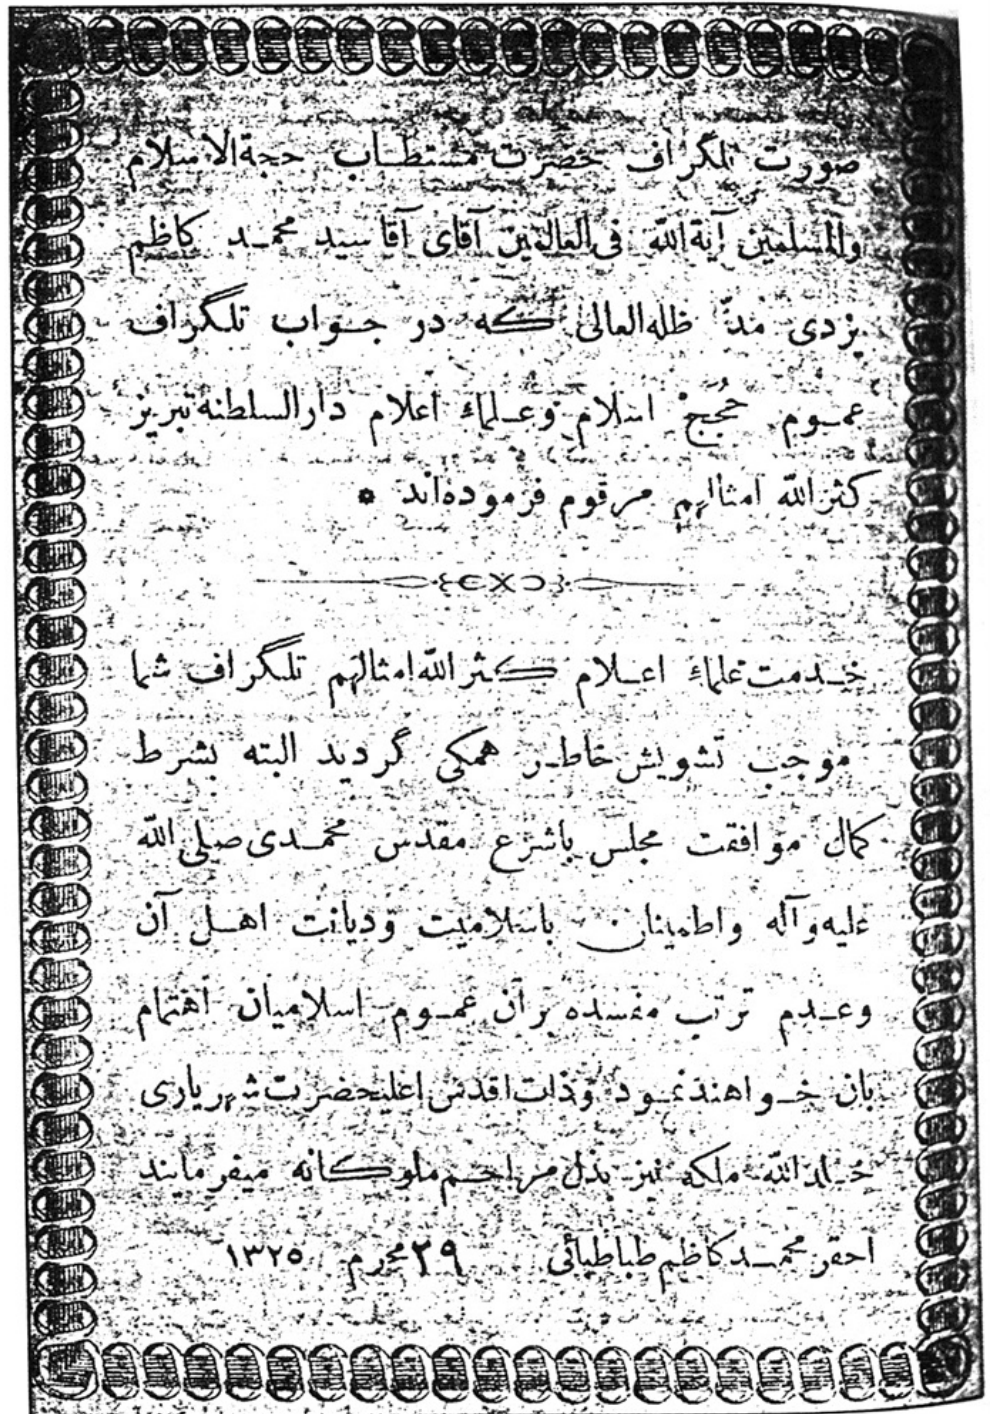 صورت تلگراف حضرت مستطاب حجةالاسلام
والمسلمین آیةالله فی‌العالمین آقای آقا سید محمد کاظم
یزدی مدّ ظله‌العالی که در جواب تلگراف
عموم حُجج اسلام وعلماء اعلام دارالسلطنه تبریز
کثرالله امثالهم مرقوم فرموده‌اند *
خدمت علماء اعلام کثرالله امثالهم تلگراف شما
موجب تشویش خاطر همکی گردید البته بشرط
کمال موافقت مجلس باشرع مقدس محمدی صلی‌الله
علیه وآله واطمینان باسلامیت ودیانت اهل آن
وعدم ترتب مفسده برآن عموم اسلامیان اهتمام
بان خواهند نمود وذات اقدس اعلیحضرت شهریاری
خلدالله ملکه نیز بذل مراحم ملوکانه میفرمایند
احقر محمد کاظم طباطبائی ۲۹ محرم ۱۳۲۵